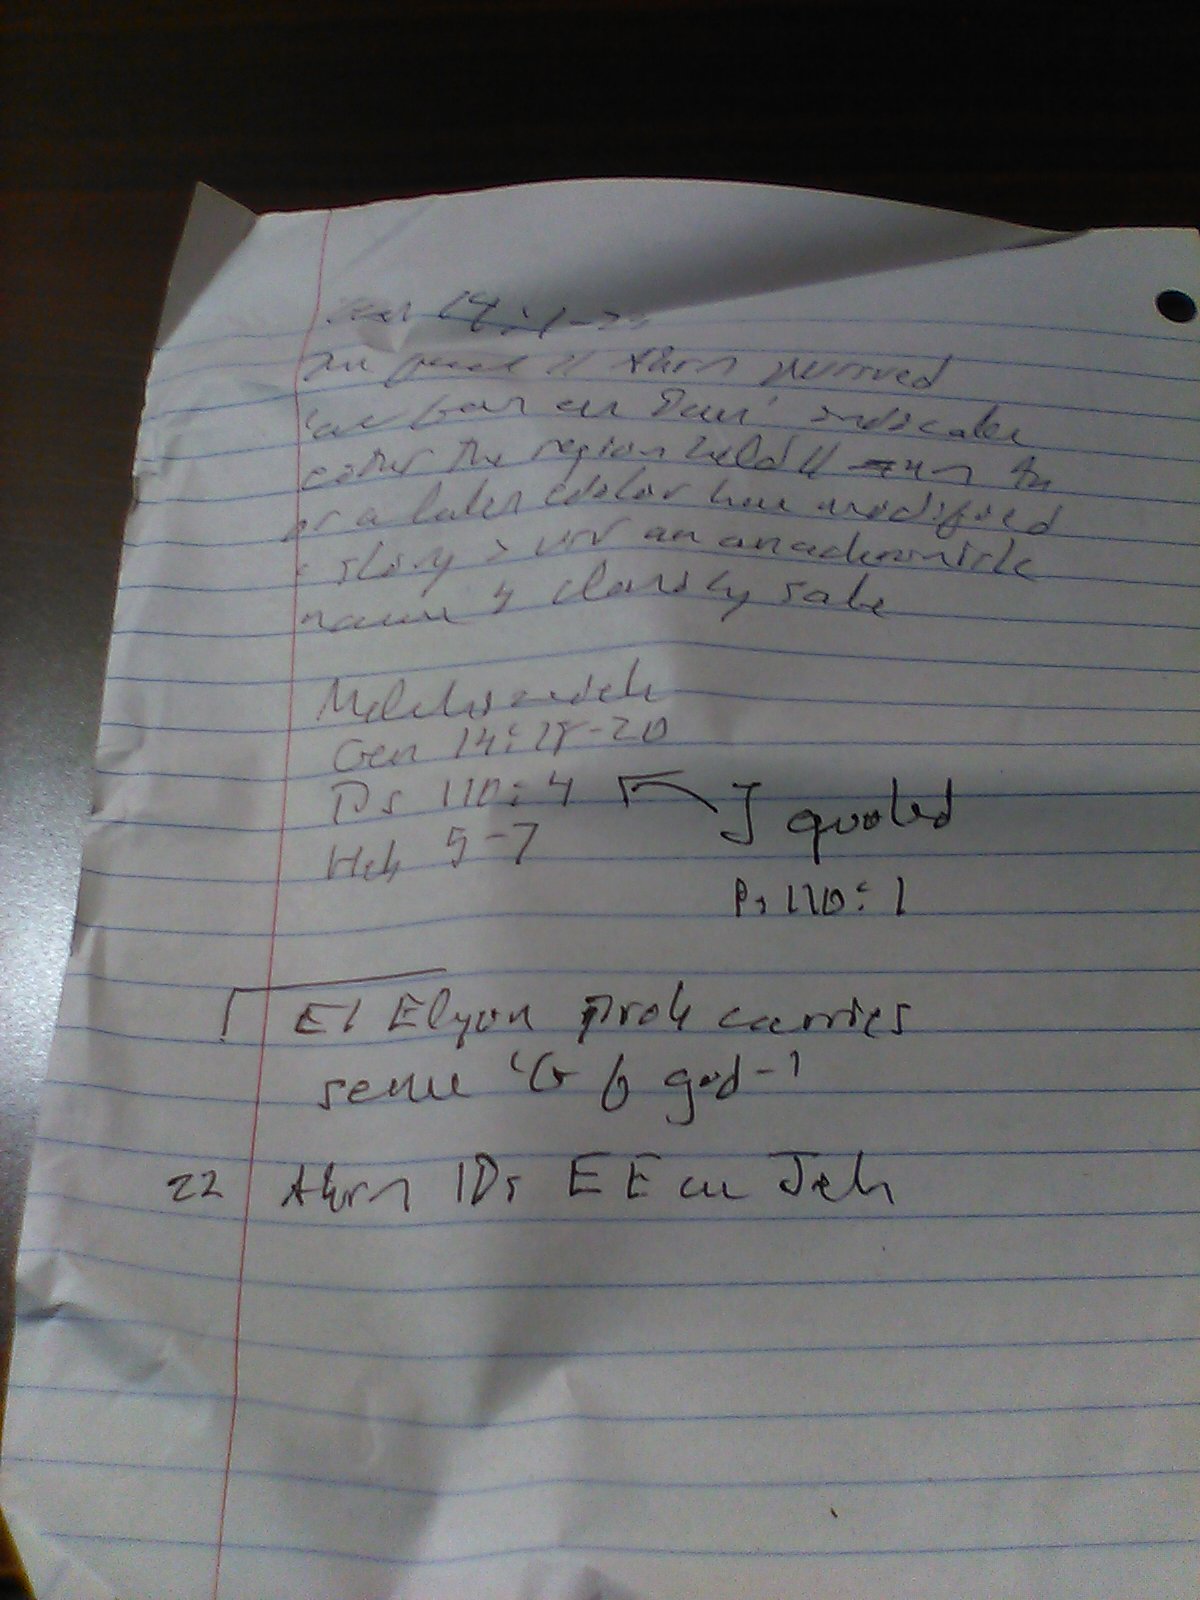 14:1-
Abrn pursued
'as far as Dan' indicates
either the region held
or a later editor have modified
story > an anachronistic
name 4 clarity sake
Melchizedek
Gen 14:18-20
Ps 110:4
J quoted
Heb 5-7
Ps 110:1
El Elyon prob carries
sense 'G of god-'
22 Abrn IDs EE as Jeh